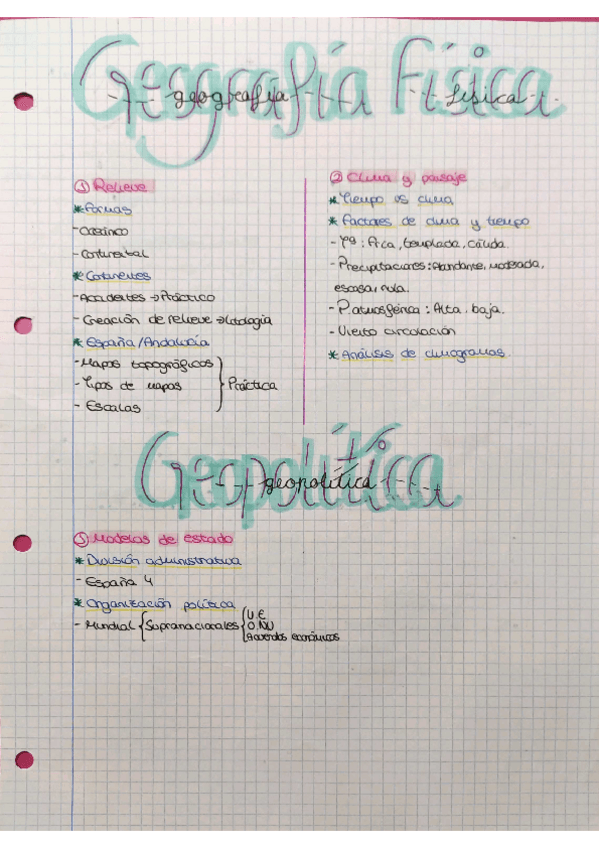 Geografía Física
geografía física
① Relieve
* Formas
- Oceánico
- Continental
* Continentes
- Accidentes → Práctico
- Creación de relieve → Litología
* España / Andalucía
- Mapas topográficos
- Tipos de mapas
- Escalas
} Práctica
② Clima y paisaje
* Tiempo vs clima
* Factores de clima y tiempo
- Tª: Alta, templada, cálida.
- Precipitaciones: Abundante, moderada,
escasa, nula.
- P. atmosférica: Alta, baja.
- Viento circulación
* Análisis de climogramas
Geopolítica
geopolítica
③ Modelos de estado
* División administrativa
- España
* Organización política
- Mundial { Supranacionales { U.E
O.NU
Acuerdos económicos